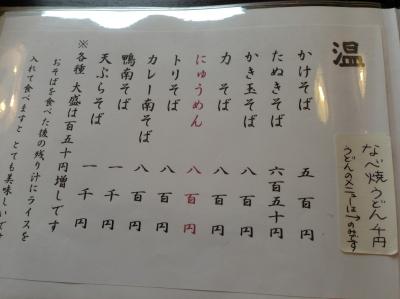 なべ焼うどん千円
うどんのメニューは→のみです
温
かけそば 五百円
たぬきそば 六百五十円
かき玉そば 八百円
力そば 八百円
にゅうめん 八百円
トリそば 八百円
カレー南そば 八百円
鴨南そば 一千円
天ぷらそば 一千円
※各種 大盛は百五十円増しです
おそばを食べた後の残り汁にライスを
入れて食べますと とても美味しいです